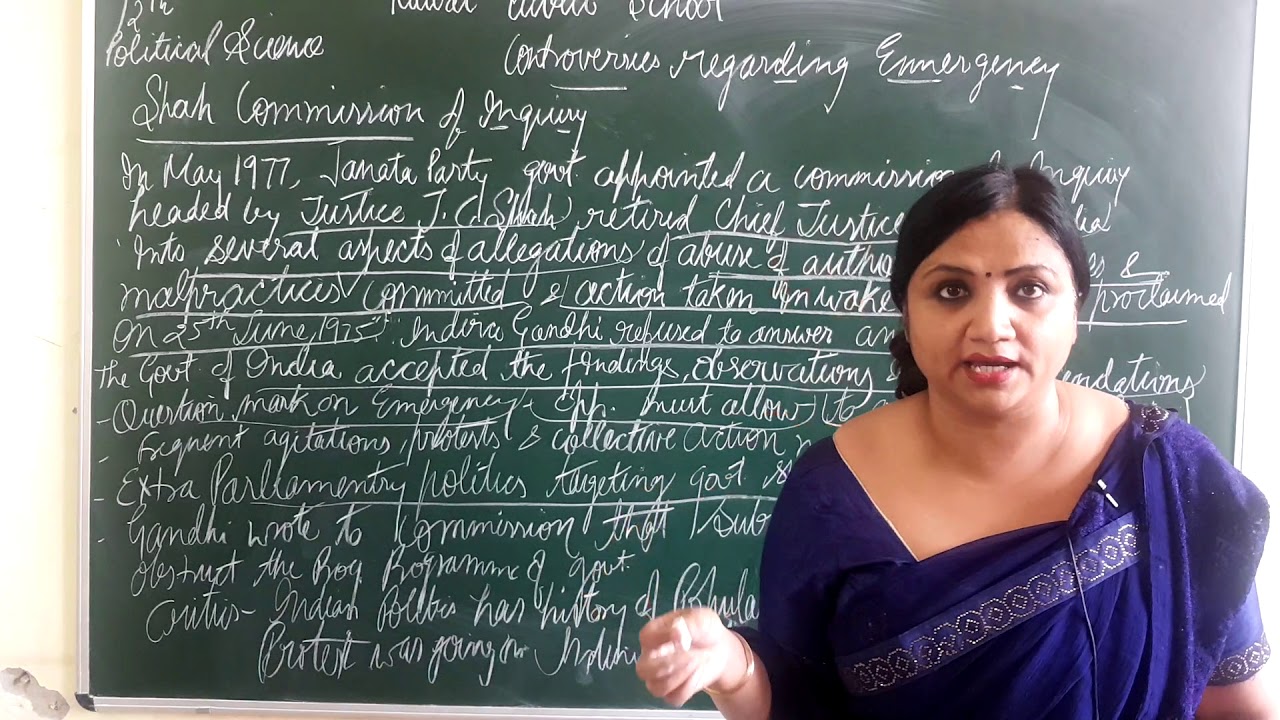 12th Public School
Political Science Controversies regarding Emmergency
Shah Commission of Inquiry
In May 1977, Janata Party govt. appointed a commission Inquiry
headed by Justice J. C. Shah, retired Chief Justice
Into several aspects of allegations of abuse of &
malpractices committed & action taken in wake proclaimed
On 25th June, 1975". Indira Gandhi refused to answer
the Govt. of India accepted the findings, observations
- Question mark on Emergency - Opp. must allow to
- Frequent agitations, protests & collective action
- Extra Parliamentry politics targeting govt.
- Gandhi wrote to Commission that
obstruct the Programme of govt.
Critics - Indian Politics has history of
Protest was going in